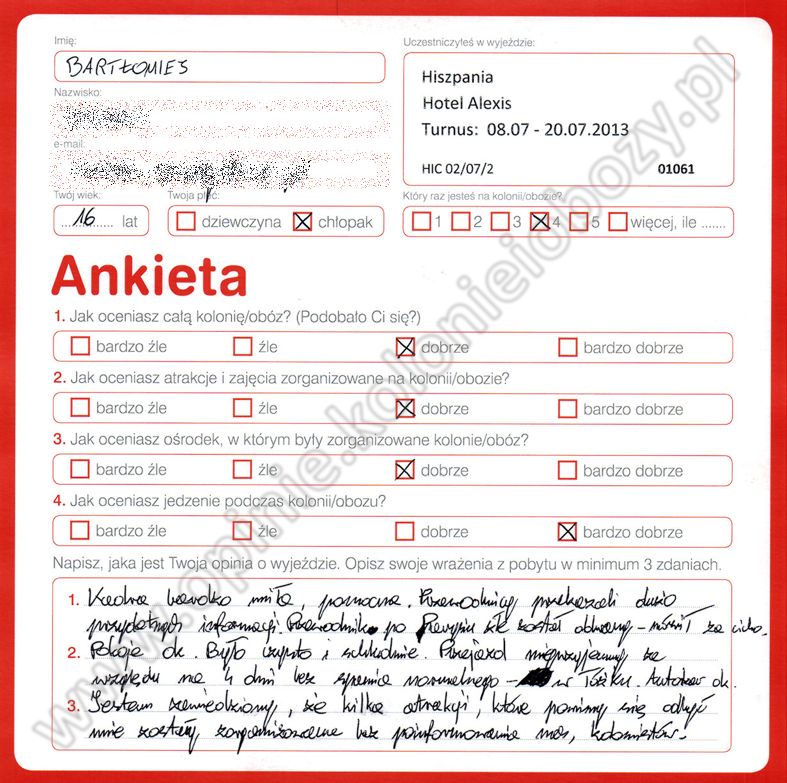 Imię:
BARTŁOMIEJ
Nazwisko:
e-mail:
Twój wiek:
16 lat
Twoja płeć:
dziewczyna chłopak
Uczestniczyłeś w wyjeździe:
Hiszpania
Hotel Alexis
Turnus: 08.07 - 20.07.2013
HIC 02/07/2 01061
Który raz jesteś na kolonii/obozie?
1 2 3 4 5 więcej, ile .......
Ankieta
1. Jak oceniasz całą kolonię/obóz? (Podobało Ci się?)
bardzo źle źle dobrze bardzo dobrze
2. Jak oceniasz atrakcje i zajęcia zorganizowane na kolonii/obozie?
bardzo źle źle dobrze bardzo dobrze
3. Jak oceniasz ośrodek, w którym były zorganizowane kolonie/obóz?
bardzo źle źle dobrze bardzo dobrze
4. Jak oceniasz jedzenie podczas kolonii/obozu?
bardzo źle źle dobrze bardzo dobrze
Napisz, jaka jest Twoja opinia o wyjeździe. Opisz swoje wrażenia z pobytu w minimum 3 zdaniach.
1. Kadra bardzo miła, pomocna. Przewodnicy przekazali dużo
przydatnych informacji. Przewodnik po źle został dobrany - mówił za cicho.
2. Pokoje ok. Było czysto i schludnie. Przejazd nieprzyjemny ze
względu na 4 dni bez spania normalnego - w łóżku. Autokar ok.
3. Jestem zawiedziony, że kilka atrakcji, które powinny się odbyć
nie zostały zorganizowane bez poinformowania nas, kolonistów.
www.opinie.kolonieiobozy.pl